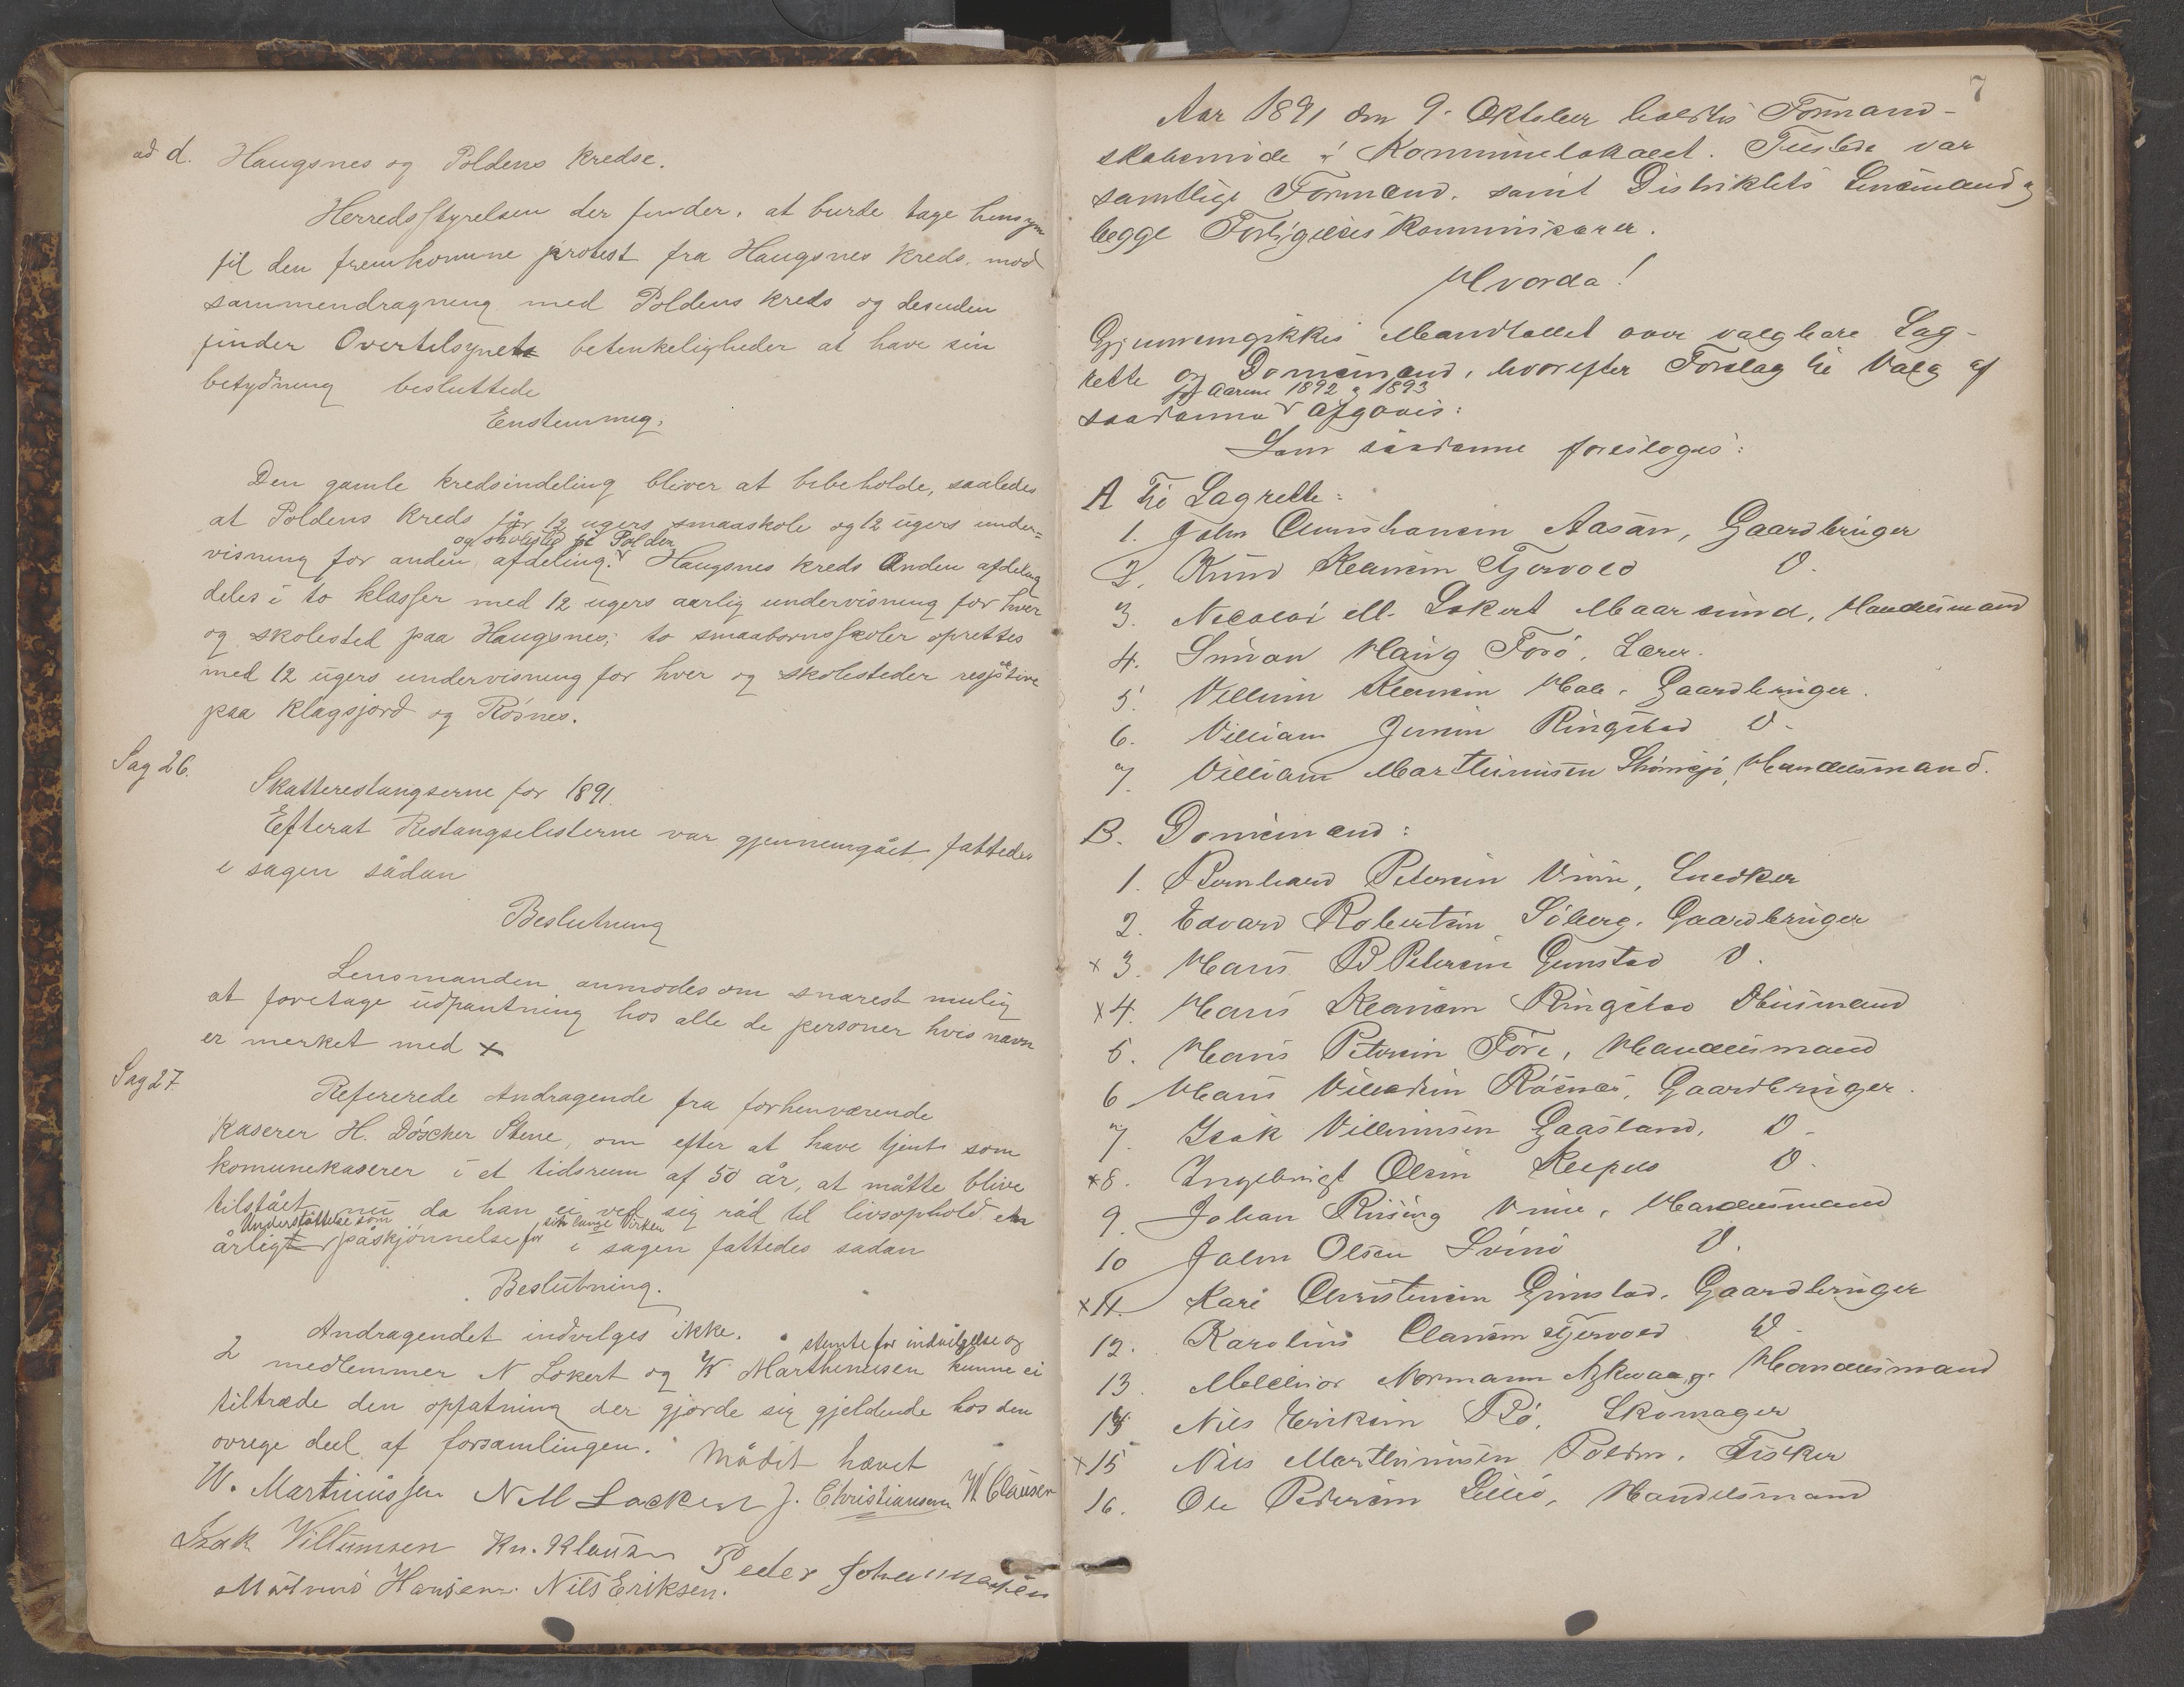 ad d. Haugsnes og Poldens Kredse.
Herredsstyrelsen der finder, at burde tage hensyn
til den fremkomne protest fra Haugsnes Kreds mod
sammendragning med Poldens kreds og desuden
finder Overtilsynets betenkeligheder at have sin
betydning besluttede
Enstemmig.
Den gamle kredsindeling bliver at bibeholde, saaledes
at Poldens Kreds får 12 ugers smaaskole og 12 ugers under=
og skolested på Polden
visning for anden afdeling. Haugsnes kreds Anden afdeling
deles i to klasser med 12 ugers aarlig undervisning for hver
og skolested paa Haugsnes; to smaabornsskoler oprettes
med 12 ugers undervisning for hver og skolesteder respektive
paa Klagsjord og Rösnes.
Sag 26.
Skatterestangserne for 1891.
Efterat Restangselisterne var gjennemgået fattedes
i sagen sådan
Beslutning
Lensmanden anmodes om snarest mulig
at foretage udpantning hos alle de personer hvis navn
er merket med x
Sag 27.
Refererede Andragende fra forhenværende
Kaserer H. Döscher Stene, om efter at have tjent som
komunekaserer i et tidsrum af 50 år, at måtte blive
tilstået nu da han ei ved sig råd til livsophold en
Understöttelse som sin lange Virken
årligt påskjönnelse for i sagen fattedes sadan
Beslutning.
Andragendet indvilges ikke.
stemte for indvilgelse og
2 medlemmer N Lokert og W Marthinusen kunne ei
tiltræde den opfatning der gjorde sig gjeldende hos den
ovrege deel af forsamlingen. Mödet hævet
W. Martinussen N M Lockert J. Christiansen W Clausen
Isak Villumsen Kn. Klausen Peder Johannesen
Martinus Hansen. Nils Eriksen.
7
Aar 1891 den 9. Oktober holdtes Formand-
skabsmöde i Kommunelokalet. Tilstede var
samtlige Formænd, samt Distriktets Lensmand og
begge Forligelseskommissærer.
Hvorda!
Gjennemgikkes Mandtallet over valgbare Lag-
rette og Domsmænd, hvorefter Forslag til Valg af
for Aarene 1892 og 1893
saadanne afgaves:
Som saadanne foresloges:
A Til Lagrette:
1. John Christiansen Aasan, Gaardbruger
2. Knud Klausen Fjervold D.
3. Nicolai M. Lokert Maarsund, Handelsmand
4. Simon Haug Forö, Lærer.
5. Villum Klausen Hals, Gaardbruger.
6. Villiam Jensen Ringstad D.
7. Villiam Marthinusen Skönsjö, Handelsmand.
B. Domsmænd:
1. Bernhard Petersen Vinje, Snedker
2. Edvard Robertsen Söberg, Gaardbruger
x 3. Hans B Petersen Gimstad D.
x 4. Hans Klausen Ringstad Husmand
5. Hans Petersen Före, Handelsmand
6 Hans Villadsen Rösnes, Gaardbruger.
7. Isak Villumsen Gaasland, D.
x 8. Ingebrigt Olsen D.
9. Johan Rising Vinje, Handelsmand
10 John Olsen Svinö D.
x 11. Karl Christensen Gimstad, Gaardbruger
12. Karolius Clausen Fjervold D.
13. Melchior Normann Askvaag, Handelsmand
14 Nils Eriksen Bö, Skomager
x 15 Nils Marthinusen Polden, Fisker
16. Ole Pedersen Lilleö, Handelsmand